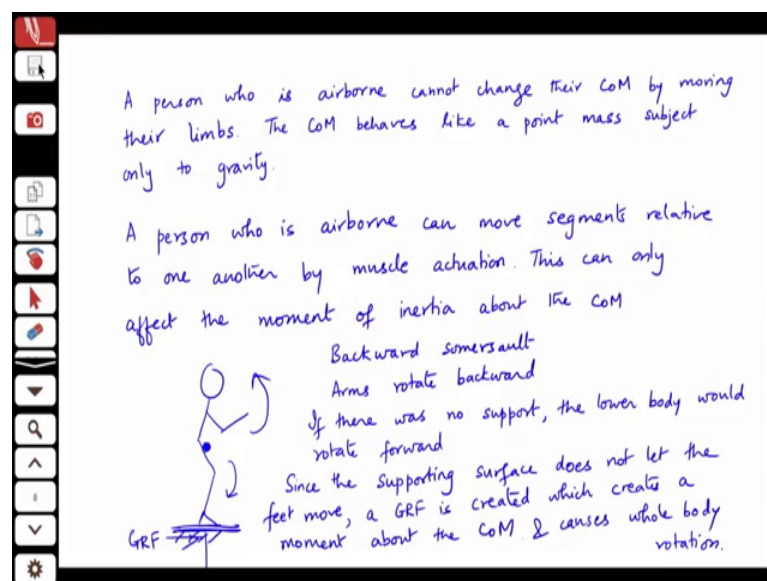 A person who is airborne cannot change their CoM by moving
their limbs. The CoM behaves like a point mass subject
only to gravity.
A person who is airborne can move segments relative
to one another by muscle actuation. This can only
affect the moment of inertia about the CoM
Backward somersault
Arms rotate backward
If there was no support, the lower body would
rotate forward
Since the supporting surface does not let the
feet move, a GRF is created which create a
moment about the CoM & causes whole body
rotation.
GRF
8